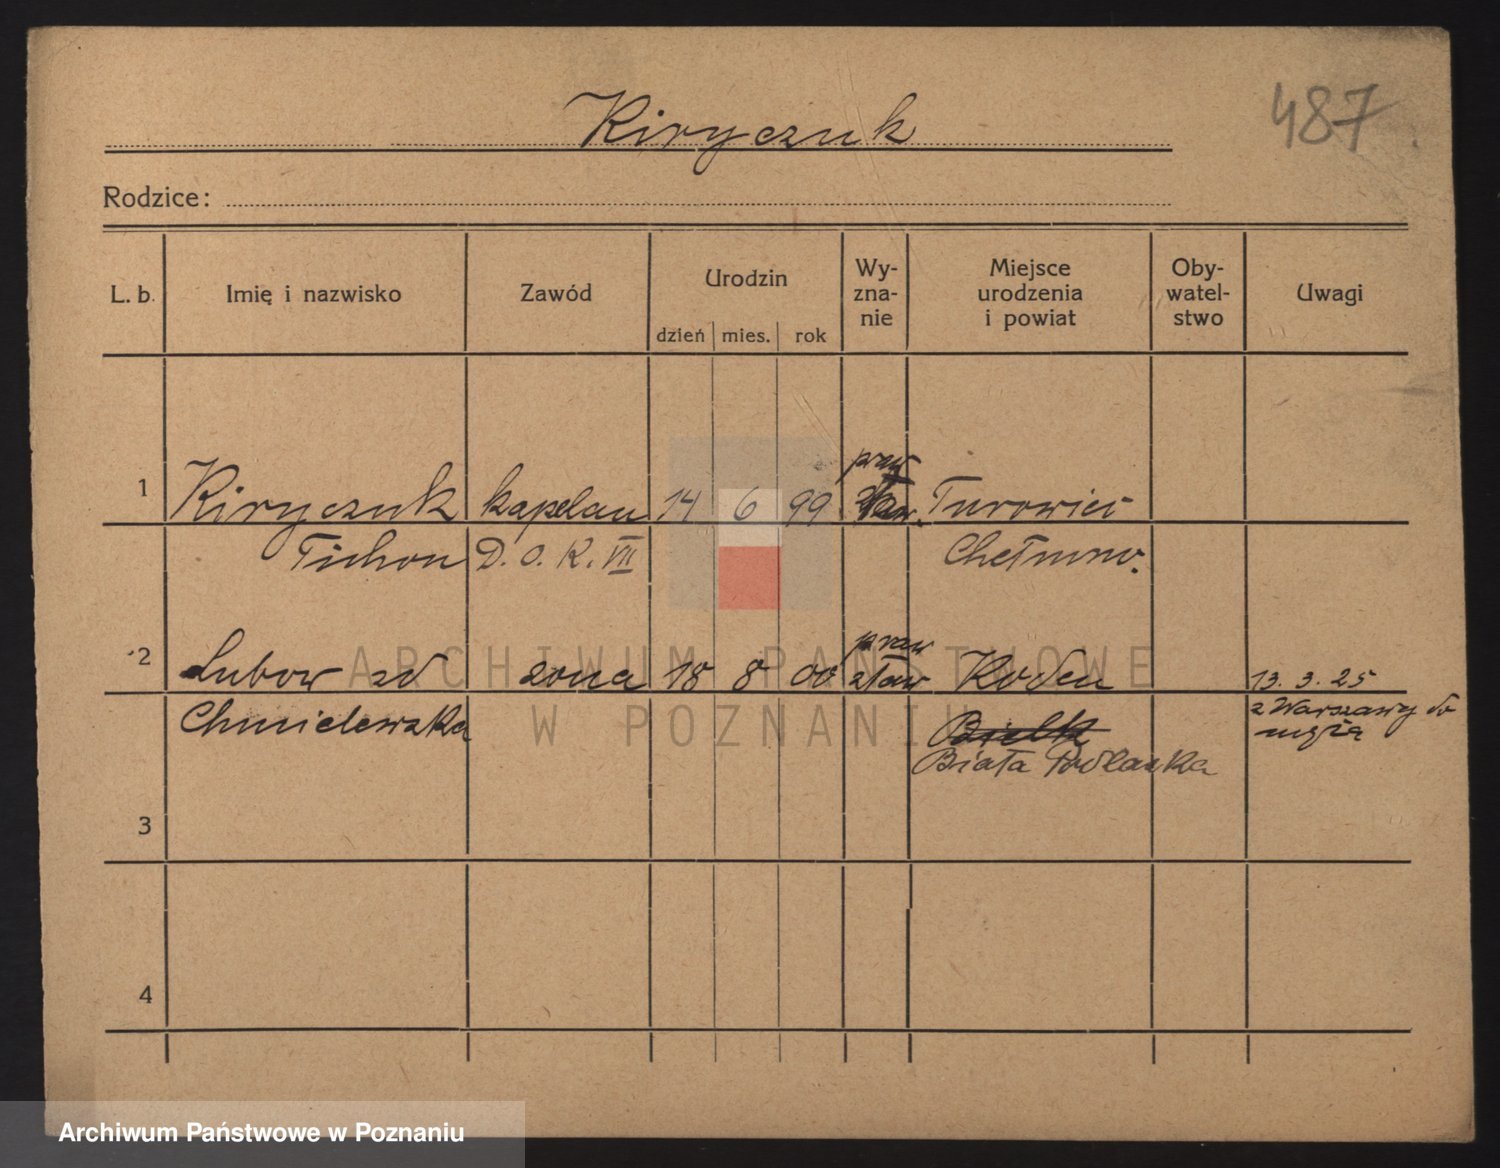 Kiryczuk
487
Rodzice:
L. b. Imię i nazwisko Zawód Urodzin dzień mies. rok Wy-zna-nie Miejsce urodzenia i powiat Oby-watel-stwo Uwagi
praw
1 Kiryczuk kapelan 14 6 99 Turowiec
Tichon D. O. K. VII Chełmno.
praw
2 Lubow zd żona 18 8 00 sław Kodeń 13. 3. 25
Chmielewska z Warszawy do
Bielk męża
Biała Podlaska
3
4
ARCHIWUM PAŃSTWOWE
W POZNANIU
Archiwum Państwowe w Poznaniu